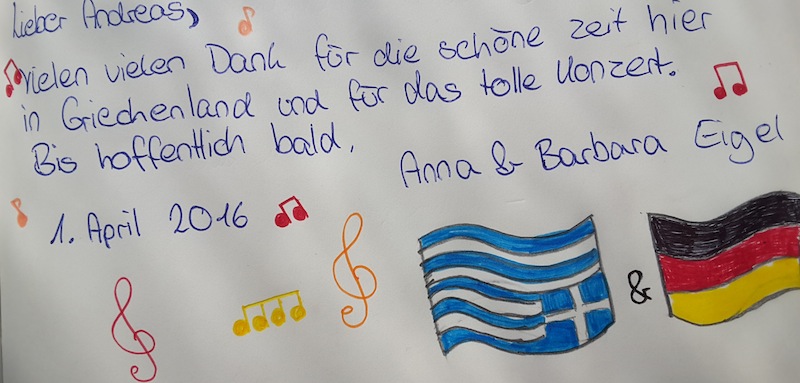 Lieber Andreas,
vielen vielen Dank für die schöne zeit hier
in Griechenland und für das tolle Konzert.
Bis hoffentlich bald,
Anna & Barbara Eigel
1. April 2016
&